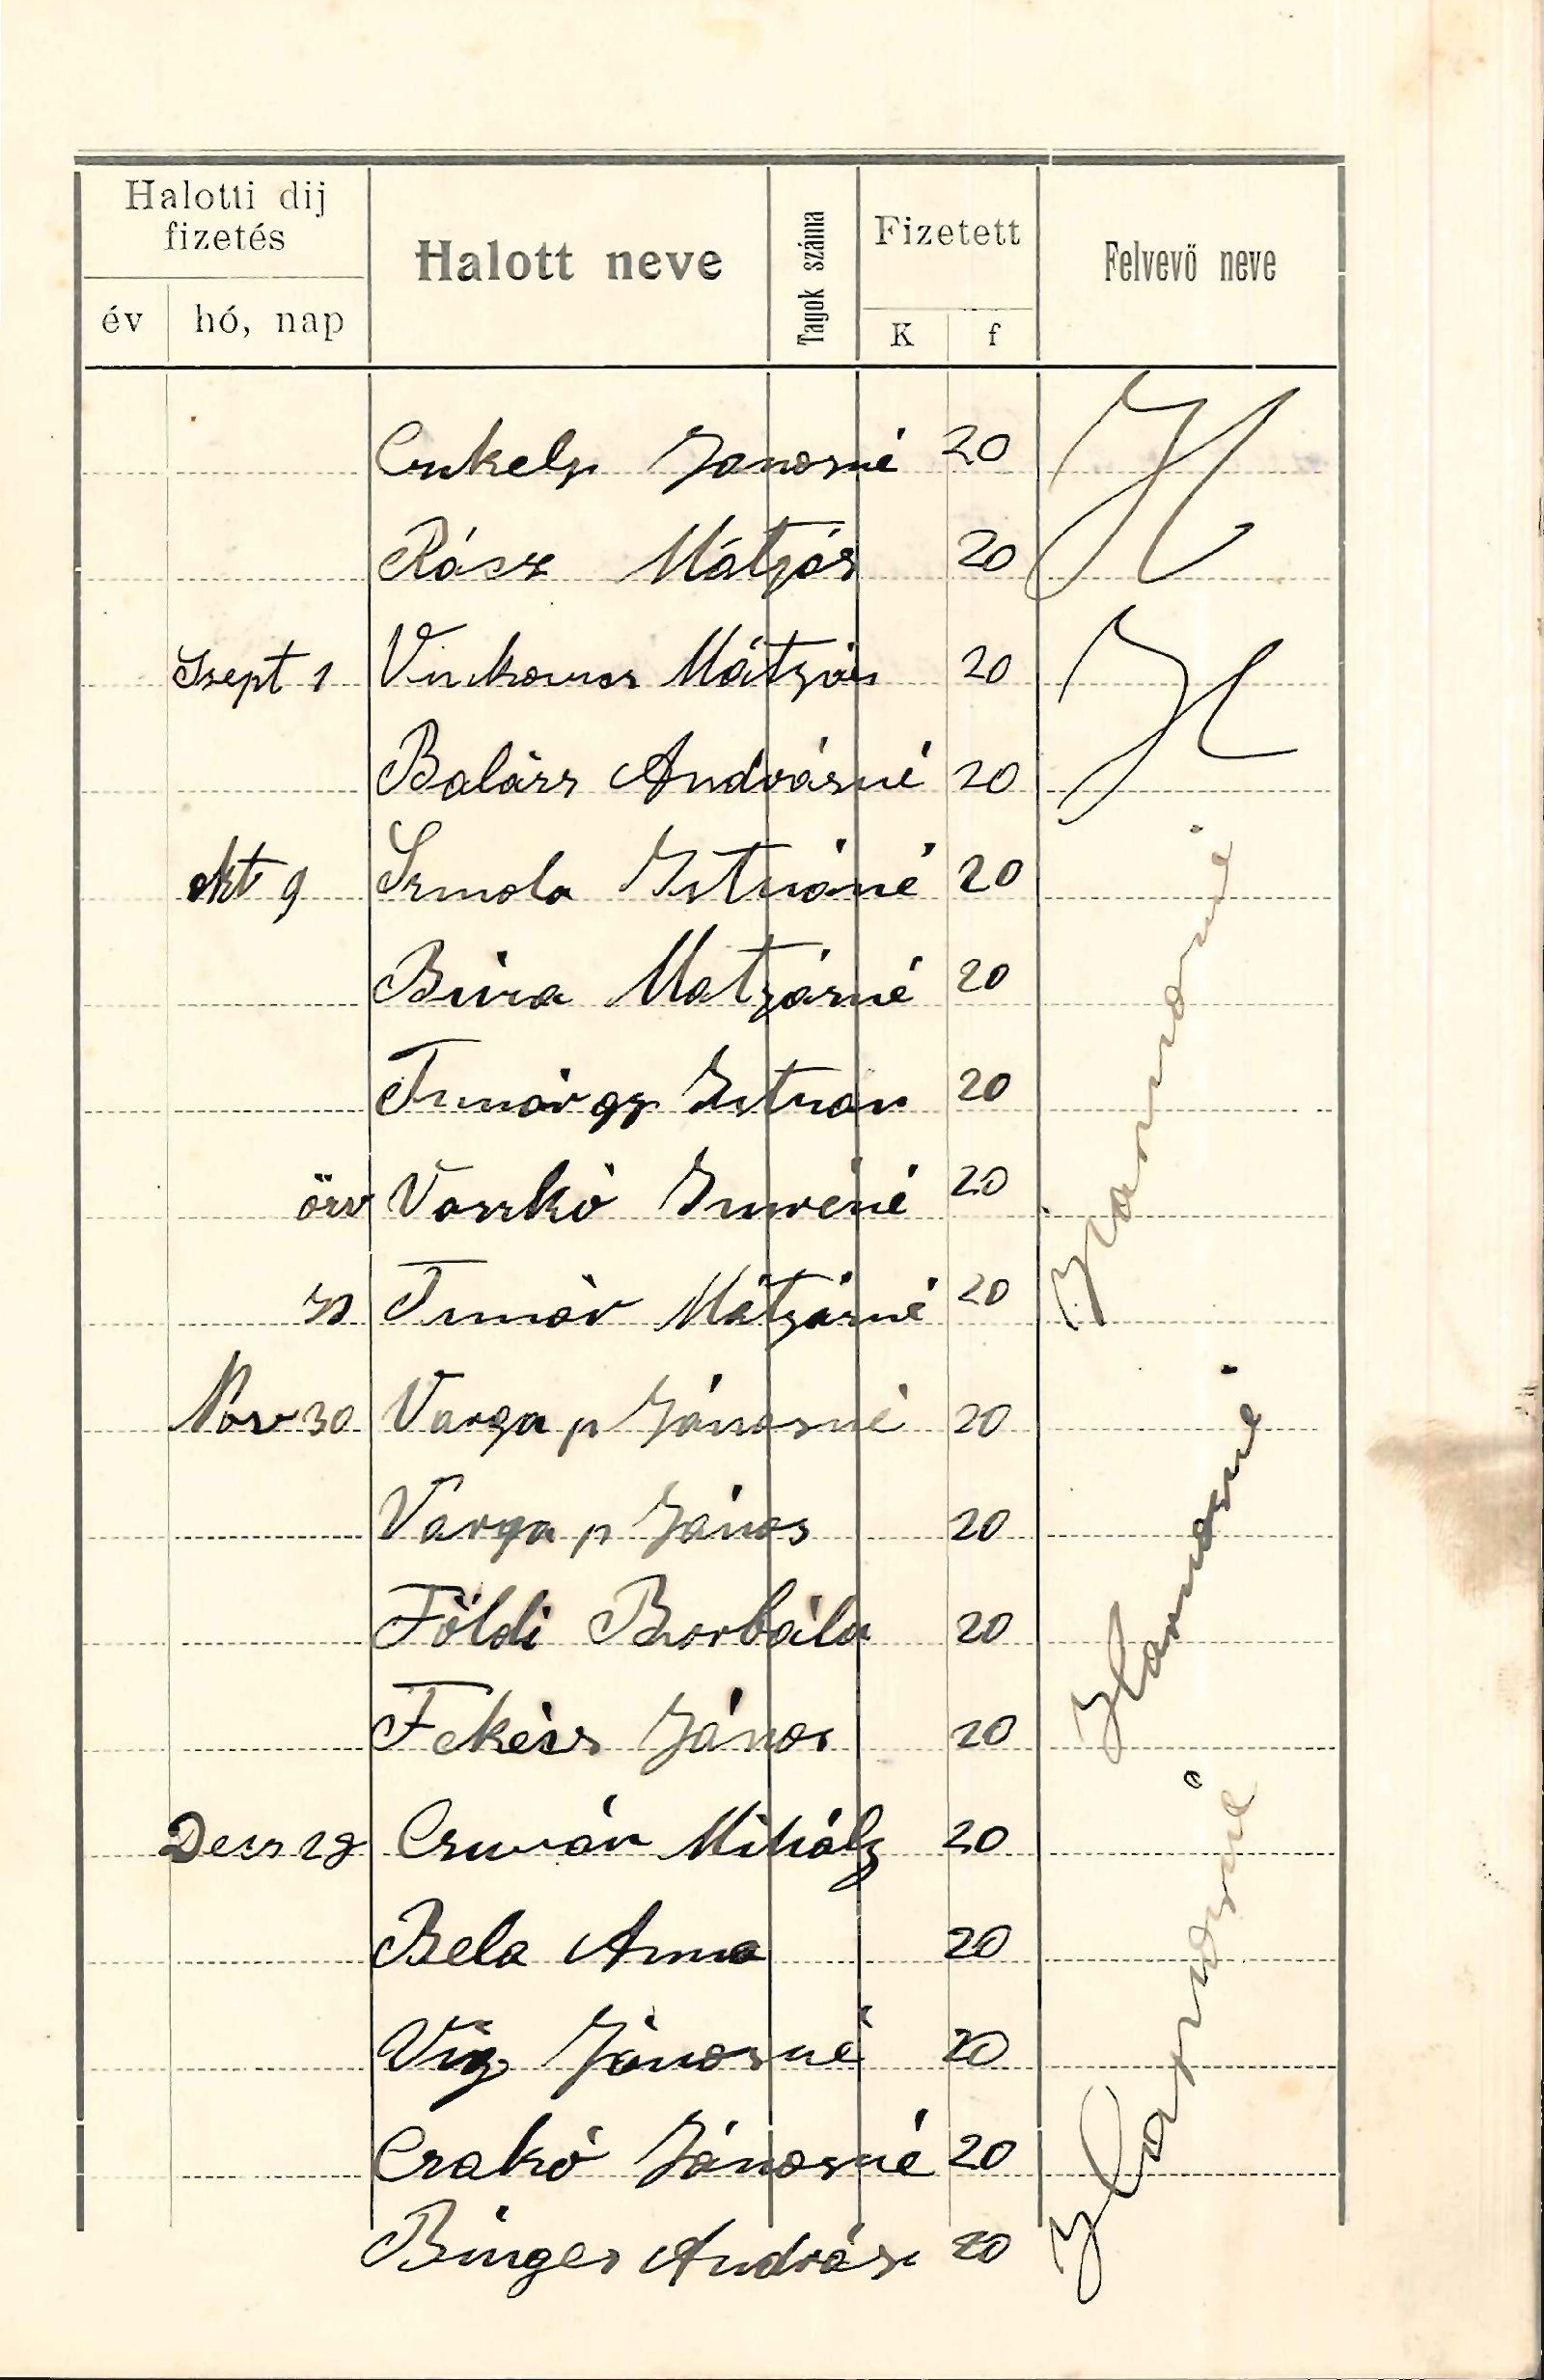 Halotti dij fizetés
Halott neve
Tagok száma
Fizetett
Felvevő neve
év hó, nap
K f
Jánosné 20
Rász Mátyás 20
Szept 1 Vinkovics Mátyás 20
Balázs Andrásné 20
okt 9 Szmola Istváné 20
Búra Matyásné 20
Timár gy István 20
özv Vaszkó Imréné 20
Timár Mátyásné 20
Nov 30 Varga p Jánosné 20
Varga p János 20
Földi Borbála 20
Fekész János 20
Decz 29 Csuván Mihály 20
Bela Anna 20
Víg Jánosné 20
Czakó Jánosné 20
Binges András 20